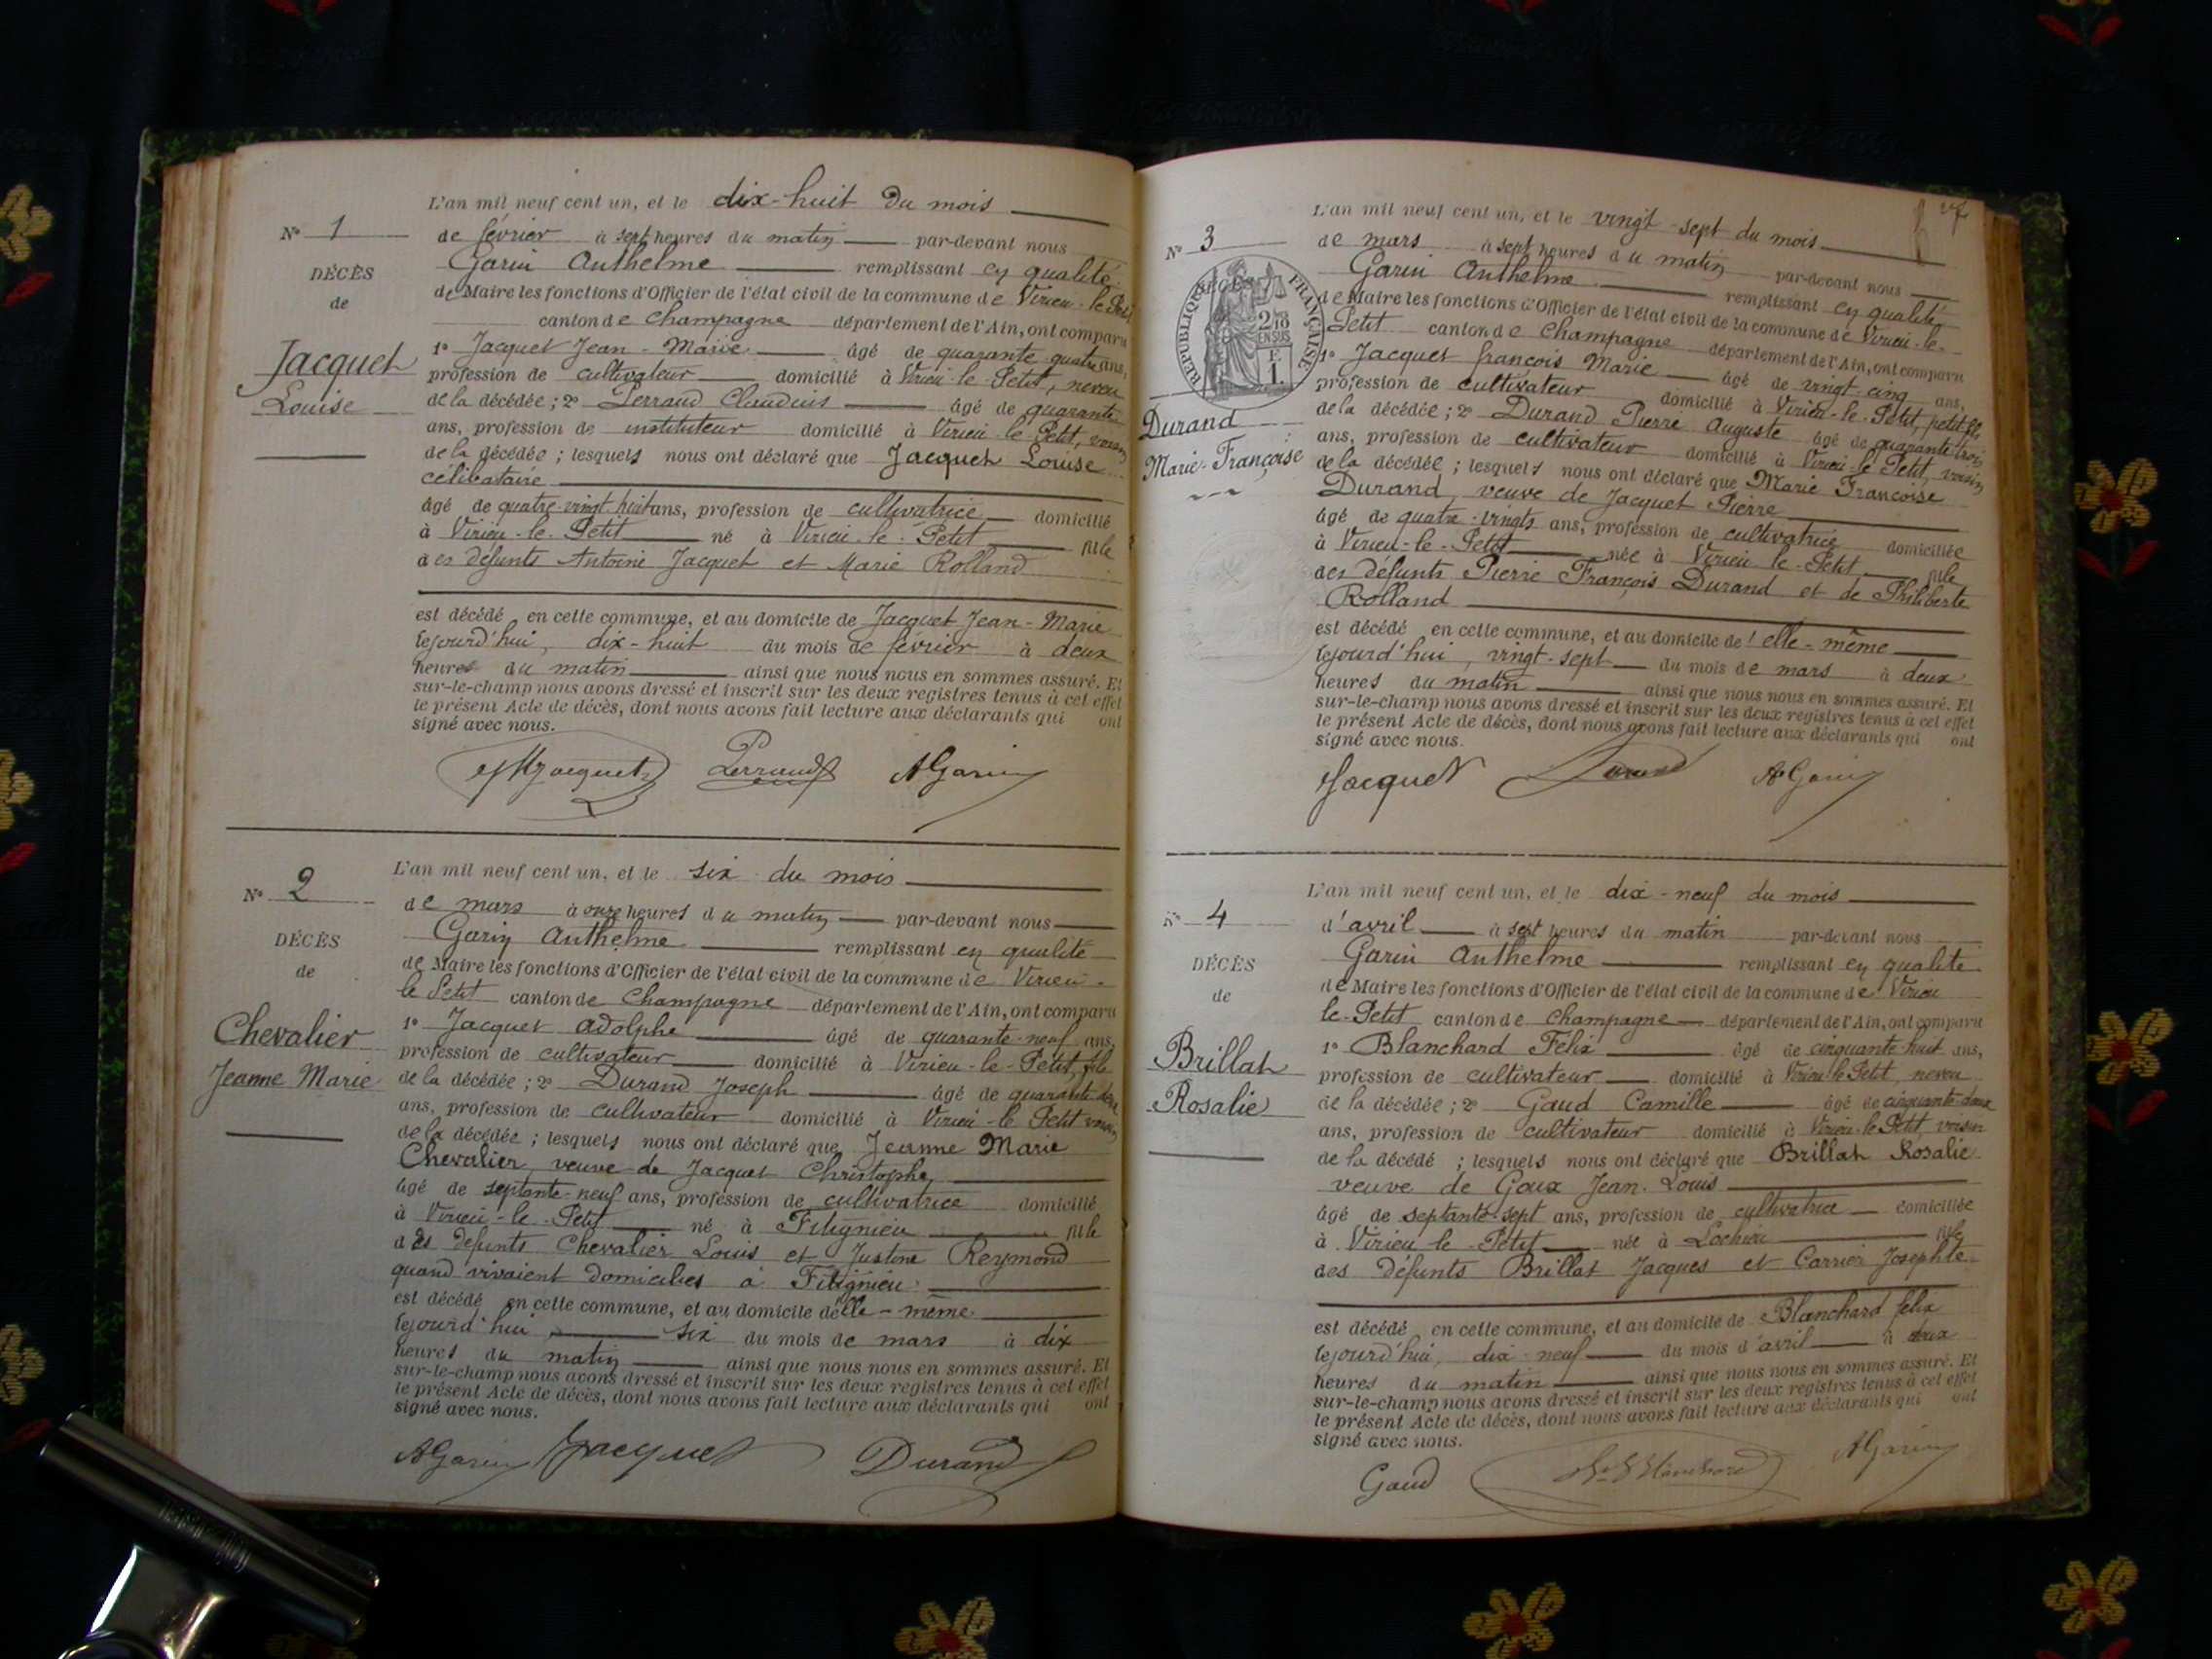 L'an mil neuf cent un, et le dix-huit du mois
N° 1
de février à sept heures du matin par-devant nous
Garin Anthelme remplissant en qualité
DÉCÈS
de Maire les fonctions d'Officier de l'état civil de la commune de Virieu-le-Petit
de
canton de Champagne département de l'Ain, ont comparu
Jacquet
1° Jacquet Jean-Marie âgé de quarante-quatre ans,
profession de cultivateur domicilié à Virieu-le-Petit, neveu
Louise
de la décédée; 2° Perraud Claudius âgé de quarante
ans, profession de instituteur domicilié à Virieu le Petit, voisin
de la décédée; lesquels nous ont déclaré que Jacquet Louise
célibataire
âgé de quatre-vingt-huit ans, profession de cultivatrice domicilié
à Virieu-le-Petit né à Virieu-le-Petit fille
des défunts Antoine Jacquet et Marie Rolland
est décédé en cette commune, et au domicile de Jacquet Jean-Marie
lejourd'hui, dix-huit du mois de février à deux
heures du matin ainsi que nous nous en sommes assuré. Et
sur-le-champ nous avons dressé et inscrit sur les deux registres tenus à cet effet
le présent Acte de décès, dont nous avons fait lecture aux déclarants qui ont
signé avec nous.
Jacquet Perraud AGarin
L'an mil neuf cent un, et le six du mois
N° 2
de mars à onze heures du matin par-devant nous
Garin Anthelme remplissant en qualité
DÉCÈS
de Maire les fonctions d'Officier de l'état civil de la commune de Virieu-
de
le Petit canton de Champagne département de l'Ain, ont comparu
Chevalier
1° Jacquet Adolphe âgé de quarante-neuf ans,
profession de cultivateur domicilié à Virieu-le-Petit, fils
Jeanne Marie
de la décédée; 2° Durand Joseph âgé de quarante-deux
ans, profession de cultivateur domicilié à Virieu-le Petit voisin
de la décédée; lesquels nous ont déclaré que Jeanne Marie
Chevalier, veuve de Jacquet Christophe,
âgé de septante-neuf ans, profession de cultivatrice domicilié
à Virieu-le-Petit né à Fitignieu fille
des défunts Chevalier Louis et Justine Reymond
quand vivaient domiciliés à Fitignieu
est décédé en cette commune, et au domicile d'elle-même
lejourd'hui, six du mois de mars à dix
heures du matin ainsi que nous nous en sommes assuré. Et
sur-le-champ nous avons dressé et inscrit sur les deux registres tenus à cet effet
le présent Acte de décès, dont nous avons fait lecture aux déclarants qui ont
signé avec nous.
AGarin Jacquet Durand
L'an mil neuf cent un, et le vingt-sept du mois
N° 3
de mars à sept heures du matin par-devant nous
Garin Anthelme remplissant en qualité
DÉCÈS
RÉPUBLIQUE FRANÇAISE
2/10 EN SUS
F. 1.
de Maire les fonctions d'Officier de l'état civil de la commune de Virieu-le-
Petit canton de Champagne département de l'Ain, ont comparu
1° Jacquet françois Marie âgé de vingt-cinq ans,
profession de cultivateur domicilié à Virieu-le-Petit, petit fils
Durand
de la décédée; 2° Durand Pierre Auguste âgé de quarante-trois
Marie-Françoise
ans, profession de cultivateur domicilié à Virieu-le Petit, voisin
de la décédée; lesquels nous ont déclaré que Marie Françoise
Durand, veuve de Jacquet Pierre
âgé de quatre-vingts ans, profession de cultivatrice domiciliée
à Virieu-le-Petit née à Virieu le-Petit fille
des défunts Pierre François Durand et de Philiberte
Rolland
est décédé en cette commune, et au domicile de elle-même
lejourd'hui, vingt-sept du mois de mars à deux
heures du matin ainsi que nous nous en sommes assuré. Et
sur-le-champ nous avons dressé et inscrit sur les deux registres tenus à cet effet
le présent Acte de décès, dont nous avons fait lecture aux déclarants qui ont
signé avec nous.
Jacquet Durand AGarin
L'an mil neuf cent un, et le dix-neuf du mois
N° 4
d'avril à sept heures du matin par-devant nous
Garin Anthelme remplissant en qualité
DÉCÈS
de Maire les fonctions d'Officier de l'état civil de la commune de Virieu
de
le-Petit canton de Champagne département de l'Ain, ont comparu
Brillat
1° Blanchard Félix âgé de cinquante-huit ans,
profession de cultivateur domicilié à Virieu-le Petit, neveu
Rosalie
de la décédée; 2° Gaud Camille âgé de cinquante-deux
ans, profession de cultivateur domicilié à Virieu-le Petit, voisin
de la décédé; lesquels nous ont déclaré que Brillat Rosalie
veuve de Goux Jean-Louis
âgé de septante-sept ans, profession de cultivatrice domiciliée
à Virieu le-Petit née à Lochieu fille
des défunts Brillat Jacques et Carrier Josephte
est décédé en cette commune, et au domicile de Blanchard félix
lejourd'hui, dix-neuf du mois d'avril à deux
heures du matin ainsi que nous nous en sommes assuré. Et
sur-le-champ nous avons dressé et inscrit sur les deux registres tenus à cet effet
le présent Acte de décès, dont nous avons fait lecture aux déclarants qui ont
signé avec nous.
Gaud Blanchard AGarin